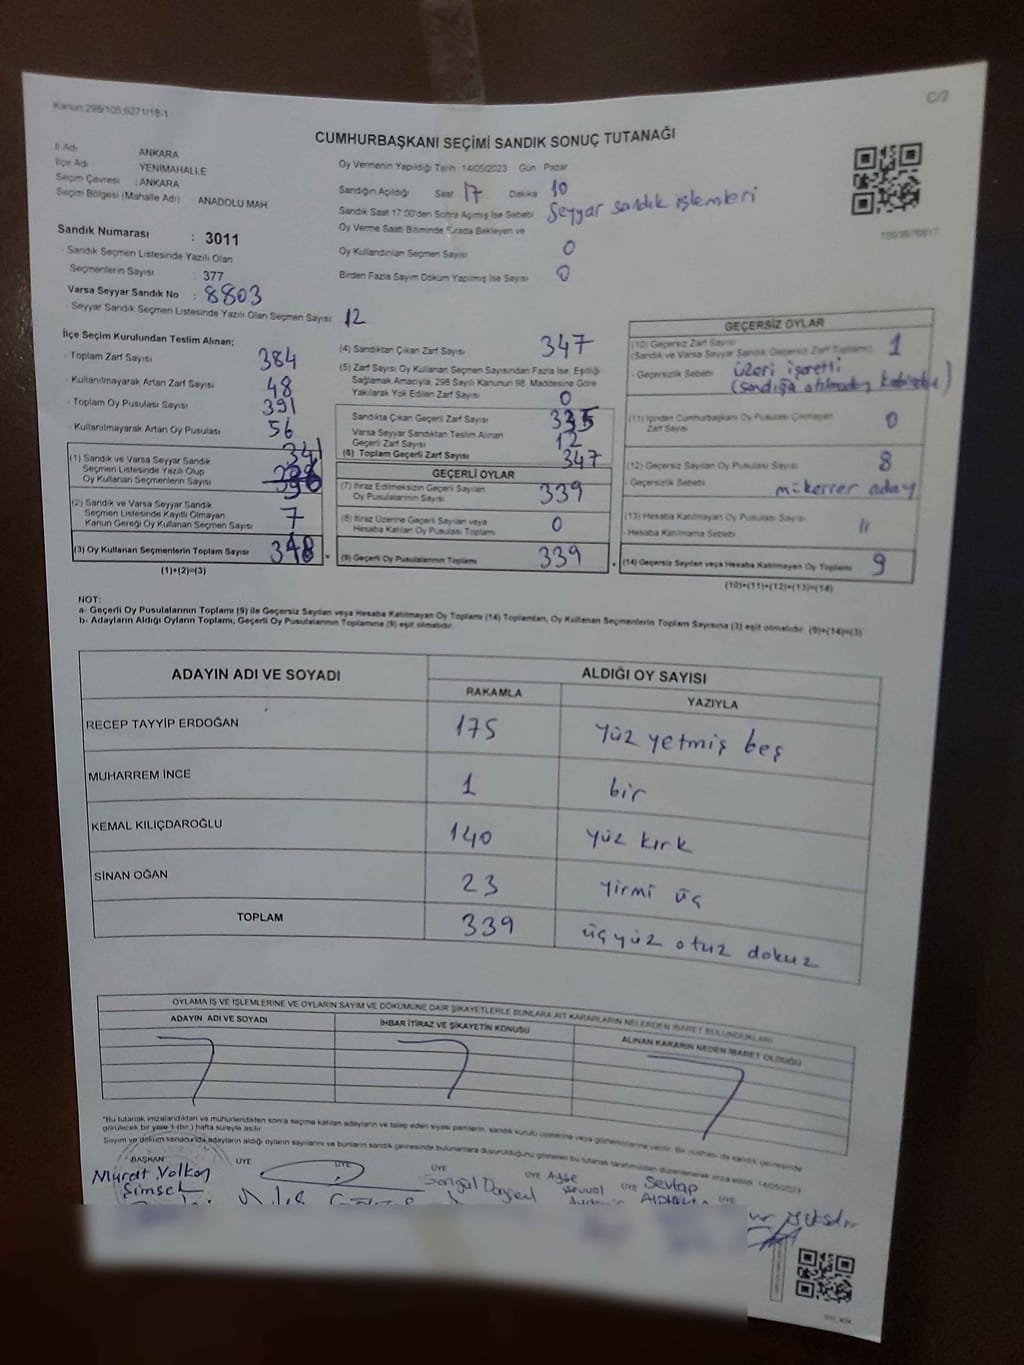 Kanun:298/105,6271/18-1
C/2
CUMHURBAŞKANI SEÇİMİ SANDIK SONUÇ TUTANAĞI
İl Adı ANKARA
İlçe Adı YENİMAHALLE
Seçim Çevresi : ANKARA
Seçim Bölgesi (Mahalle Adı) ANADOLU MAH
Sandık Numarası : 3011
- Sandık Seçmen Listesinde Yazılı Olan
Seçmenlerin Sayısı : 377
Varsa Seyyar Sandık No : 8803
- Seyyar Sandık Seçmen Listesinde Yazılı Olan Seçmen Sayısı 12
Oy Vermenin Yapıldığı Tarih 14/05/2023 Gün Pazar
Sandığın Açıldığı Saat 17 Dakika 10
Sandık Saat 17:00'den Sonra Açımış İse Sebebi Seyyar sandık işlemleri
Oy Verme Saati Bitiminde Sırada Bekleyen ve
Oy Kullandırılan Seçmen Sayısı 0
Birden Fazla Sayım Döküm Yapılmış İse Sayısı 0
İlçe Seçim Kurulundan Teslim Alınan;
- Toplam Zarf Sayısı 384
- Kullanılmayarak Artan Zarf Sayısı 48
- Toplam Oy Pusulası Sayısı 391
- Kullanılmayarak Artan Oy Pusulası 56
(1) Sandık ve Varsa Seyyar Sandık
Seçmen Listesinde Yazılı Olup
Oy Kullanan Seçmenlerin Sayısı 341
(2) Sandık ve Varsa Seyyar Sandık
Seçmen Listesinde Kayıtlı Olmayan
Kanun Gereği Oy Kullanan Seçmen Sayısı 7
(3) Oy Kullanan Seçmenlerin Toplam Sayısı 348
(1)+(2)=(3)
(4) Sandıktan Çıkan Zarf Sayısı 347
(5) Zarf Sayısı Oy Kullanan Seçmen Sayısından Fazla İse, Eşitliği
Sağlamak Amacıyla, 298 Sayılı Kanunun 98. Maddesine Göre
Yakılarak Yok Edilen Zarf Sayısı 0
Sandıkta Çıkan Geçerli Zarf Sayısı 335
Varsa Seyyar Sandıktan Teslim Alınan
Geçerli Zarf Sayısı 12
(6) Toplam Geçerli Zarf Sayısı 347
GEÇERLİ OYLAR
(7) İtiraz Edilmeksizin Geçerli Sayılan
Oy Pusulalarının Sayısı 339
(8) İtiraz Üzerine Geçerli Sayılan veya
Hesaba Katılan Oy Pusulası Toplamı 0
(9) Geçerli Oy Pusulalarının Toplamı 339
GEÇERSİZ OYLAR
(10) Geçersiz Zarf Sayısı
(Sandık ve Varsa Seyyar Sandık Geçersiz Zarf Toplamı) 1
- Geçersizlik Sebebi üzeri işaretli
(sandığa atılmadan
(11) İçinden Cumhurbaşkanı Oy Pusulası Çıkmayan
Zarf Sayısı 0
(12) Geçersiz Sayılan Oy Pusulası Sayısı 8
Geçersizlik Sebebi mükerrer aday
(13) Hesaba Katılmayan Oy Pusulası Sayısı
- Hesaba Katılmama Sebebi
(14) Geçersiz Sayılan veya Hesaba Katılmayan Oy Toplamı 9
(10)+(11)+(12)+(13)=(14)
NOT:
a- Geçerli Oy Pusulalarının Toplamı (9) ile Geçersiz Sayılan veya Hesaba Katılmayan Oy Toplamı (14) Toplamları, Oy Kullanan Seçmenlerin Toplam Sayısına (3) eşit olmalıdır. (9)+(14)=(3)
b- Adayların Aldığı Oyların Toplamı, Geçerli Oy Pusulalarının Toplamına (9) eşit olmalıdır.
ADAYIN ADI VE SOYADI ALDIĞI OY SAYISI
RAKAMLA YAZIYLA
RECEP TAYYİP ERDOĞAN 175 yüz yetmiş beş
MUHARREM İNCE 1 bir
KEMAL KILIÇDAROĞLU 140 yüz kırk
SİNAN OĞAN 23 yirmi üç
TOPLAM 339 üçyüz otuz dokuz
OYLAMA İŞ VE İŞLEMLERİNE VE OYLARIN SAYIM VE DÖKÜMÜNE DAİR ŞİKAYETLERLE BUNLARA AİT KARARLARIN NELERDEN İBARET BULUNDUKLARI
ADAYIN ADI VE SOYADI İHBAR İTİRAZ VE ŞİKAYETİN KONUSU ALINAN KARARIN NEDEN İBARET OLDUĞU
*Bu tutanak imzalandıktan ve mühürlendikten sonra seçime katılan adayların ve talep eden siyasi partilerin sandık kurulu üyelerine veya gözlemcilerine verilir. Bir nüshası da sandık çevresinde
görülecek bir yere 1 (bir) hafta süreyle asılır.
Sayım ve döküm sonucunda adayların aldığı oyların sayılarını ve bunların sandık çevresinde bulunanlara duyurulduğunu gösteren bu tutanak tarafımızdan düzenlenerek imza edildi. 14/05/2023
BAŞKAN ÜYE ÜYE ÜYE ÜYE ÜYE
Murat Volkan
Şimşek
Songül
Ayşe
Sevtap